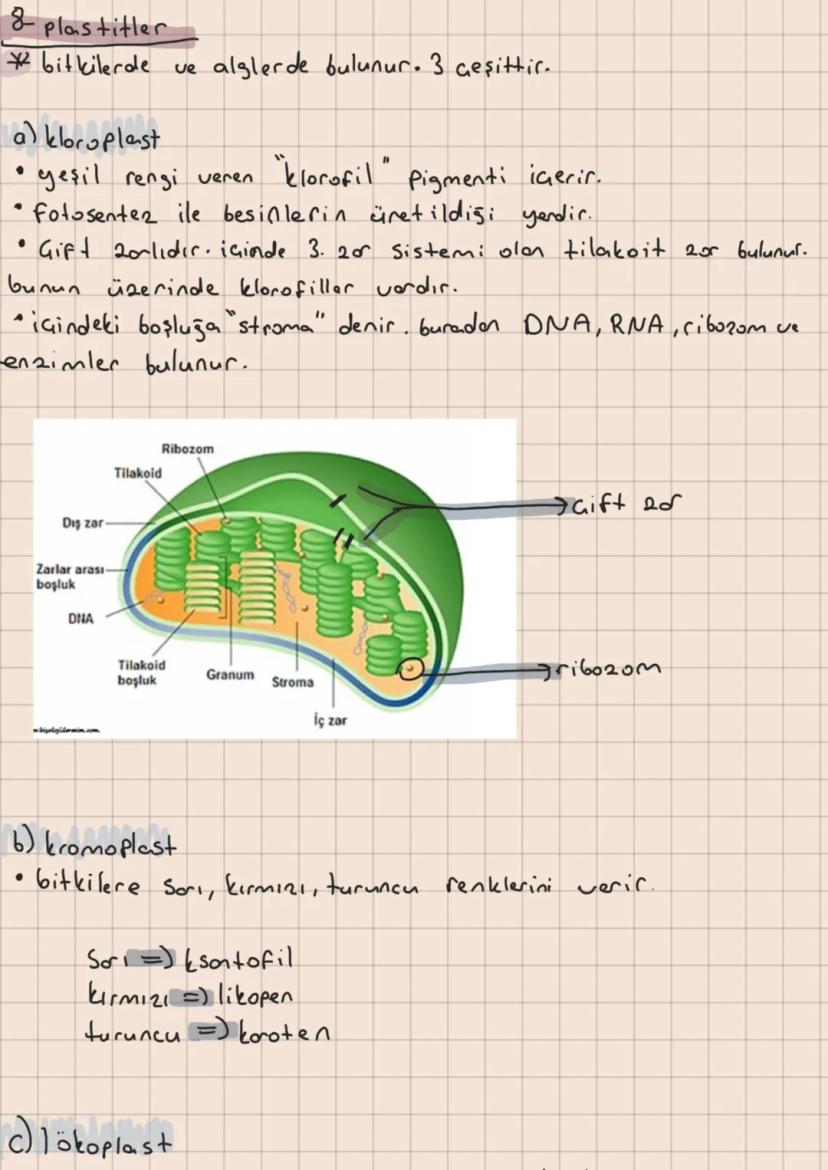 8- plastitler
* bitkilerde ve alglerde bulunur. 3 çeşittir.
a) kloroplast
• yeşil rengi veren "klorofil" pigmenti içerir.
• fotosentez ile besinlerin üretildiği yerdir.
• Çift zarlıdır. içinde 3. zar sistemi olan tilakoit zar bulunur.
bunun üzerinde klorofiller vardır.
• içindeki boşluğa "stroma" denir. buradan DNA, RNA, ribozom ve
enzimler bulunur.
Ribozom
Tilakoid
Dış zar
çift zar
Zarlar arası
boşluk
DNA
Tilakoid
boşluk
Granum
Stroma
ribozom
İç zar
b) kromoplast
• bitkilere sarı, kırmızı, turuncu renklerini verir.
Sarı => ksantofil
kırmızı => likopen
turuncu => karoten
c) lökoplast